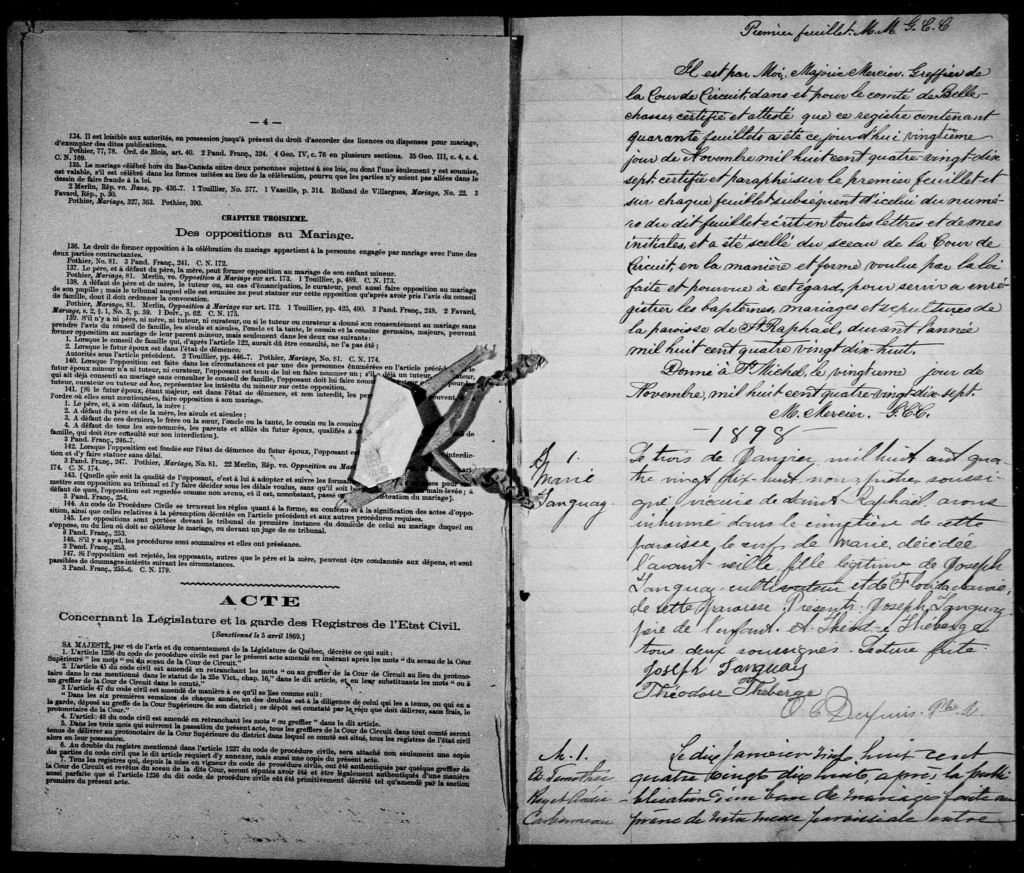 — 4 —
134. Il est loisible aux autorités, en possession jusqu'à présent du droit d'accorder des licences ou dispenses pour mariage,
d'exempter des dites publications.
Pothier, 77, 78. Ord. de Blois, art. 40. 2 Pand. Franç., 324. 4 Geo. IV, c. 76 en plusieurs sections. 35 Geo. III, c. 4, s. 4.
C. N. 169.
135. Le mariage célébré hors du Bas-Canada entre deux personnes sujettes à ses lois, ou dont l'une seulement y est soumise,
est valable, s'il est célébré dans les formes usitées au lieu de la célébration, pourvu que les parties n'y soient pas allées dans le
dessin de faire fraude à la loi.
2 Merlin, Rép. vo. Bans, pp. 436-7. 1 Touillier, No. 577. 1 Vazeille, p. 314. Rolland de Villargues, Mariage, No. 22. 3
Favard, Rép., p. 30.
Pothier, Mariage, 327, 363. Pothier, 390.
CHAPITRE TROISIEME.
Des oppositions au Mariage.
136. Le droit de former opposition à la célébration du mariage appartient à la personne engagée par mariage avec l'une des
deux parties contractantes.
Pothier, No. 81. 3 Pand. Franç., 241. C. N. 172.
137. Le père, et à défaut du père, la mère, peut former opposition au mariage de son enfant mineur.
Pothier, Mariage, 81. Merlin, vo. Opposition à Mariage sur art. 173. 1 Touillier, p. 489. C. N. 173.
138. A défaut de père et de mère, le tuteur ou, au cas d'émancipation, le curateur, peut aussi faire opposition au mariage
de son pupille ; mais le tribunal auquel elle est soumise ne peut statuer sur cette opposition qu'après avoir pris l'avis du conseil
de famille, dont il doit ordonner la convocation.
Pothier, Mariage, 81. Merlin, Opposition à Mariage sur art. 172. 1 Touillier, pp. 425, 490. 3 Pand. Franç., 248. 2 Favard,
Mariage, s. 2, § 1, No. 3, p. 59. 1 Delv., p. 62. C. N. 175.
139. S'il n'y a ni père, ni mère, ni tuteur, ni curateur, ou si le tuteur ou curateur a donné son consentement au mariage sans
prendre l'avis du conseil de famille, les aïeuls et aïeules, l'oncle et la tante, le cousin et la cousine germains, majeurs, peuvent
former opposition au mariage de leur parent mineur, mais seulement dans les deux cas suivants :
1. Lorsque le conseil de famille qui, d'après l'article 122, aurait dû être consulté, ne l'a pas été ;
2. Lorsque le futur époux est dans l'état de démence.
Autorités sous l'article précédent. 2 Touillier, pp. 446-7. Pothier, Mariage, No. 81. C. N. 174.
140. Lorsque l'opposition est faite dans les circonstances et par une des personnes énumérées en l'article
futur époux mineur n'a ni tuteur, ni curateur, l'opposant est tenu de lui en faire nommer un ; s'il a déjà un
qui ait déjà consenti au mariage sans consulter le conseil de famille, l'opposant doit lui faire
tuteur, curateur ou tuteur ad hoc, représenter les intérêts du mineur sur cette opposition.
141. [Si le futur époux, étant majeur, est dans l'état de démence, et non interdit, les
l'ordre où elles sont mentionnées, faire opposition à son mariage.
1. Le père, et, à son défaut, la mère ;
2. A défaut du père et de la mère, les aïeuls et aïeules ;
3. A défaut de ces derniers, le frère ou la sœur, l'oncle ou la tante, le cousin ou la
4. A défaut de tous les sus-nommés, les parents et alliés du futur époux, qualifiés à
famille, qui doit être consulté sur son interdiction].
3 Pand. Franç., 246-7.
142. Lorsque l'opposition est fondée sur l'état de démence du futur époux, l'opposant
tion et d'y faire statuer sans délai.
3 Pand. Franç., 247. Pothier, Mariage, No. 81. 22 Merlin, Rép. vo. Opposition au
174. C. N. 174.
143. [Quelle que soit la qualité de l'opposant, c'est à lui à adopter et suivre les
mettre son opposition au tribunal et l'y faire décider sous les délais voulus, sans qu'il soit main-levée ; à
défaut de quoi, l'opposition est regardée comme non avenue, et il est, nonobstant, passé célébration du mariage].
3 Pand. Franç., 254.
144. Au code de Procédure Civile se trouvent les règles quant à la forme, au contenu et à la signification des actes d'oppo-
sition, ainsi que celles relatives à la péremption décrétée en l'article précédent et aux autres procédures requises.
145. Les oppositions sont portées devant le tribunal de première instance du domicile de celui au mariage duquel on
s'oppose, ou du lieu où doit se célébrer le mariage, ou devant un juge de ce tribunal.
3 Pand. Franç., 253.
146. S'il y a appel, les procédures sont sommaires et elles ont préséance.
3 Pand. Franç., 253.
147. Si l'opposition est rejetée, les opposants, autres que le père et la mère, peuvent être condamnés aux dépens, et sont
passibles de doummages-intérêts suivant les circonstances.
3 Pand. Franç., 255-6. C. N. 179.
ACTE
Concernant la Législature et la garde des Registres de l'Etat Civil.
[Sanctionné le 5 avril 1869.]
SA MAJESTÉ, par et de l'avis et du consentement de la Législature de Québec, décrète ce qui suit :
1. L'article 1236 du code de procédure civile est par le présent acte amendé en insérant après les mots " du sceau de la Cour
Supérieure " les mots " ou du sceau de la Cour de Circuit."
2. L'article 45 du code civil est amendé en retranchant les mots " ou au greffier de la Cour de Circuit au lieu du protono-
taire dans le cas mentionné dans le statut de la 25e Vict., chap. 16," dans le dit article, et en leur substituants les mots " ou à
un greffier de la Cour de Circuit dans le comté."
3 L'article 47 du code civil est amendé de manière à ce qu'il se lise comme suit :
" Dans les six premières semaines de chaque année, un des doubles est à la diligence de celui qui les a tenus, ou qui en a
la garde, déposé au greffe de la Cour Supérieure de son district ; ce dépôt est constaté par le reçu que doit délivrer, sans frais, le
protonotaire de la Cour."
4. L'article 48 du code civil est amendé en retranchant les mots " ou greffier " dans le dit article.
5. Dans les trois mois qui suivront la passation du présent acte, tous les greffiers de la Cour de Circuit dans tout comté seront
tenus de délivrer au protonotaire de la Cour Supérieure du district dans lequel ce comté est situé, tous les registres de l'état civil
alors en leur possession.
6. Au double du registre mentionné dans l'article 1237 du code de procédure civile, sera attaché non seulement une copie
des parties du code civil que le dit article requiert d'y annexer, mais aussi une copie du présent acte.
7. Tous les registres qui, depuis la mise en vigueur du code de procédure civile, ont été authentiqués par quelque greffier de
la Cour de Circuit et revêtus du sceau de la dite Cour, seront réputés avoir été et être légalement authentiqués d'une manière
aussi parfaite que si l'article 1236 du dit code de procédure civile eût été primitivement décrété tel qu'amendé par la section
première du présent acte.
Premier feuillet. M. M. G. C. C
Il est par Moi, Majoric Mercier, Greffier de
la Cour de Circuit, dans et pour le comté de Belle-
chasse, certifié et attesté que ce registre contenant
quarante feuillets a été ce jour d'hui vingtième
jour de Novembre mil huit cent quatre-vingt-dix
sept, certifié et paraphé sur le premier feuillet et
sur chaque feuillet subséquent d'icelui du numé-
ro du dit feuillet écrit en toutes lettres et de mes
initiales, et a été scellé du sceau de la Cour de
Circuit, en la manière et forme voulue par la loi
faite et pourvue à cet égard, pour servir a enré-
gistrer les baptêmes, mariages et sépultures de
la paroisse de St. Raphaël, durant l'année
mil huit cent quatre vingt dix-huit.
Donné à St. Michel, le vingtième jour de
Novembre, mil huit cent quatre-vingt-dix-sept.
M. Mercier. G.C.C.
— 1898 —
S 1.
Marie
Tanguay
Le trois de Janvier, mil huit cent qua-
tre vingt dix-huit nous prêtre soussi-
gné vicaire de Saint Raphaël avons
inhumé dans le cimetière de cette
paroisse le corps de Marie, décédée
l'avant-veille, fille légitime de Joseph
Tanguay cultivateur et de Florida
de cette Paroisse. Présents: Joseph Tanguay
père de l'enfant et Théodore Théberge
tous deux soussignés. Lecture faite.
Joseph Tanguay
Théodore Théberge
O C Dupuis. Ptre V.
M. 1.
Timothée
Roy et
Carbonneau
Le dix Janvier mil huit cent
quatre vingt dix huit, après la publi-
cation d'un banc de mariage faite au
prône de notre messe paroissiale entre